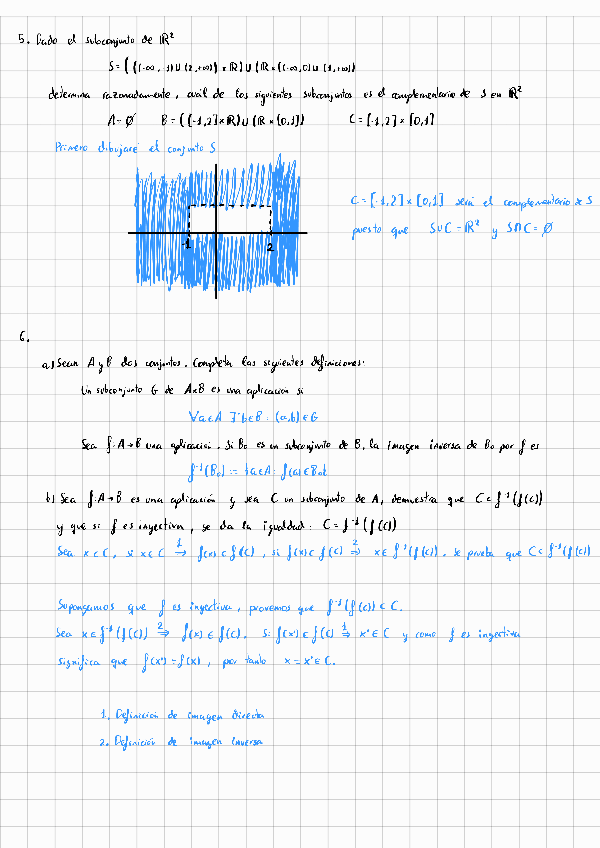 5. Dado el subconjunto de ℝ²
S = ( ((-∞, -1) ∪ (2,+∞)) × ℝ) ∪ (ℝ × ((-∞,0) ∪ (1,+∞))
determina razonadamente, cuál de los siguientes subconjuntos es el complementario de S en ℝ²
A = ∅ B = ((-1,2] × ℝ) ∪ (ℝ × (0,1]) C = [-1,2] × [0,1]
Primero dibujaré el conjunto S
C = [-1,2] × [0,1] será el complementario de S
puesto que S∪C = ℝ² y S∩C = ∅
-1 2
6.
a) Sean A y B dos conjuntos. Completa las siguientes definiciones:
Un subconjunto G de A×B es una aplicación si
∀a∈A ∃'b∈B : (a,b)∈G
Sea f: A→B una aplicación. Si B₀ es un subconjunto de B, la imagen inversa de B₀ por f es
f⁻¹(B₀) := {a∈A : f(a)∈B₀}
b) Sea f: A→B es una aplicación y sea C un subconjunto de A, demuestra que C⊂f⁻¹(f(C))
y que si f es inyectiva, se da la igualdad: C = f⁻¹(f(C))
Sea x∈C, si x∈C ⇒¹ f(x)∈f(C), si f(x)∈f(C) ⇒² x∈f⁻¹(f(C)). Se prueba que C⊂f⁻¹(f(C))
Supongamos que f es inyectiva, probemos que f⁻¹(f(C))⊂C.
Sea x∈f⁻¹(f(C)) ⇒² f(x)∈f(C). Si f(x')∈f(C) ⇒¹ x'∈C y como f es inyectiva
significa que f(x') = f(x), por tanto x = x'∈C.
1. Definición de imagen directa
2. Definición de imagen inversa